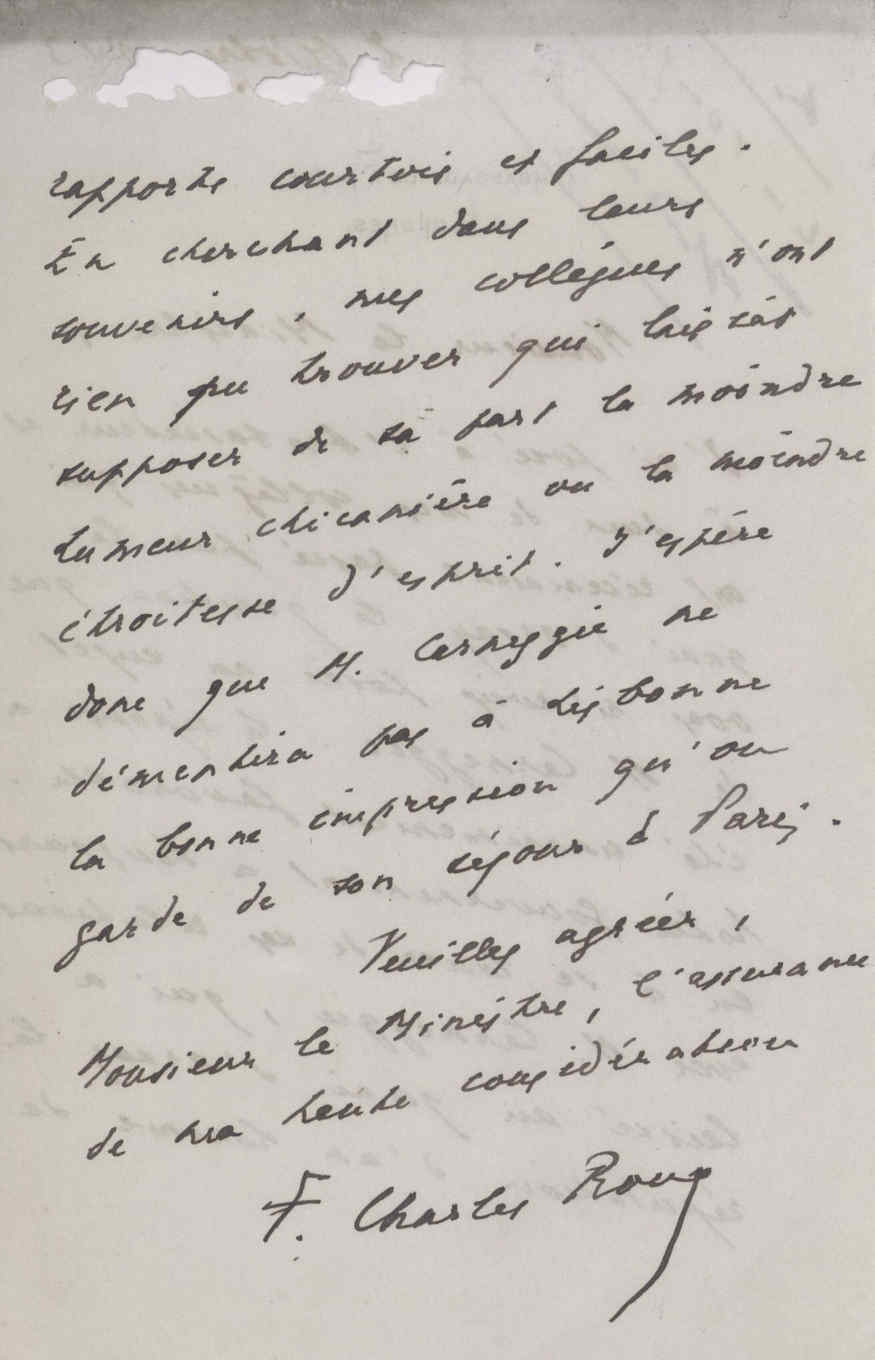 rapports courtois et faciles.
En cherchant dans leurs
souvenirs, mes collègues n'ont
rien pu trouver qui laissât
supposer de sa part la moindre
humeur chicanière ou la moindre
étroitesse d'esprit. J'espère
donc que M. Carneggie ne
démentira pas à Lisbonne
la bonne impression qu'on
garde de son séjour à Paris.
Veuillez agréer,
Monsieur le Ministre, l'assurance
de ma haute considération
F. Charles Roux